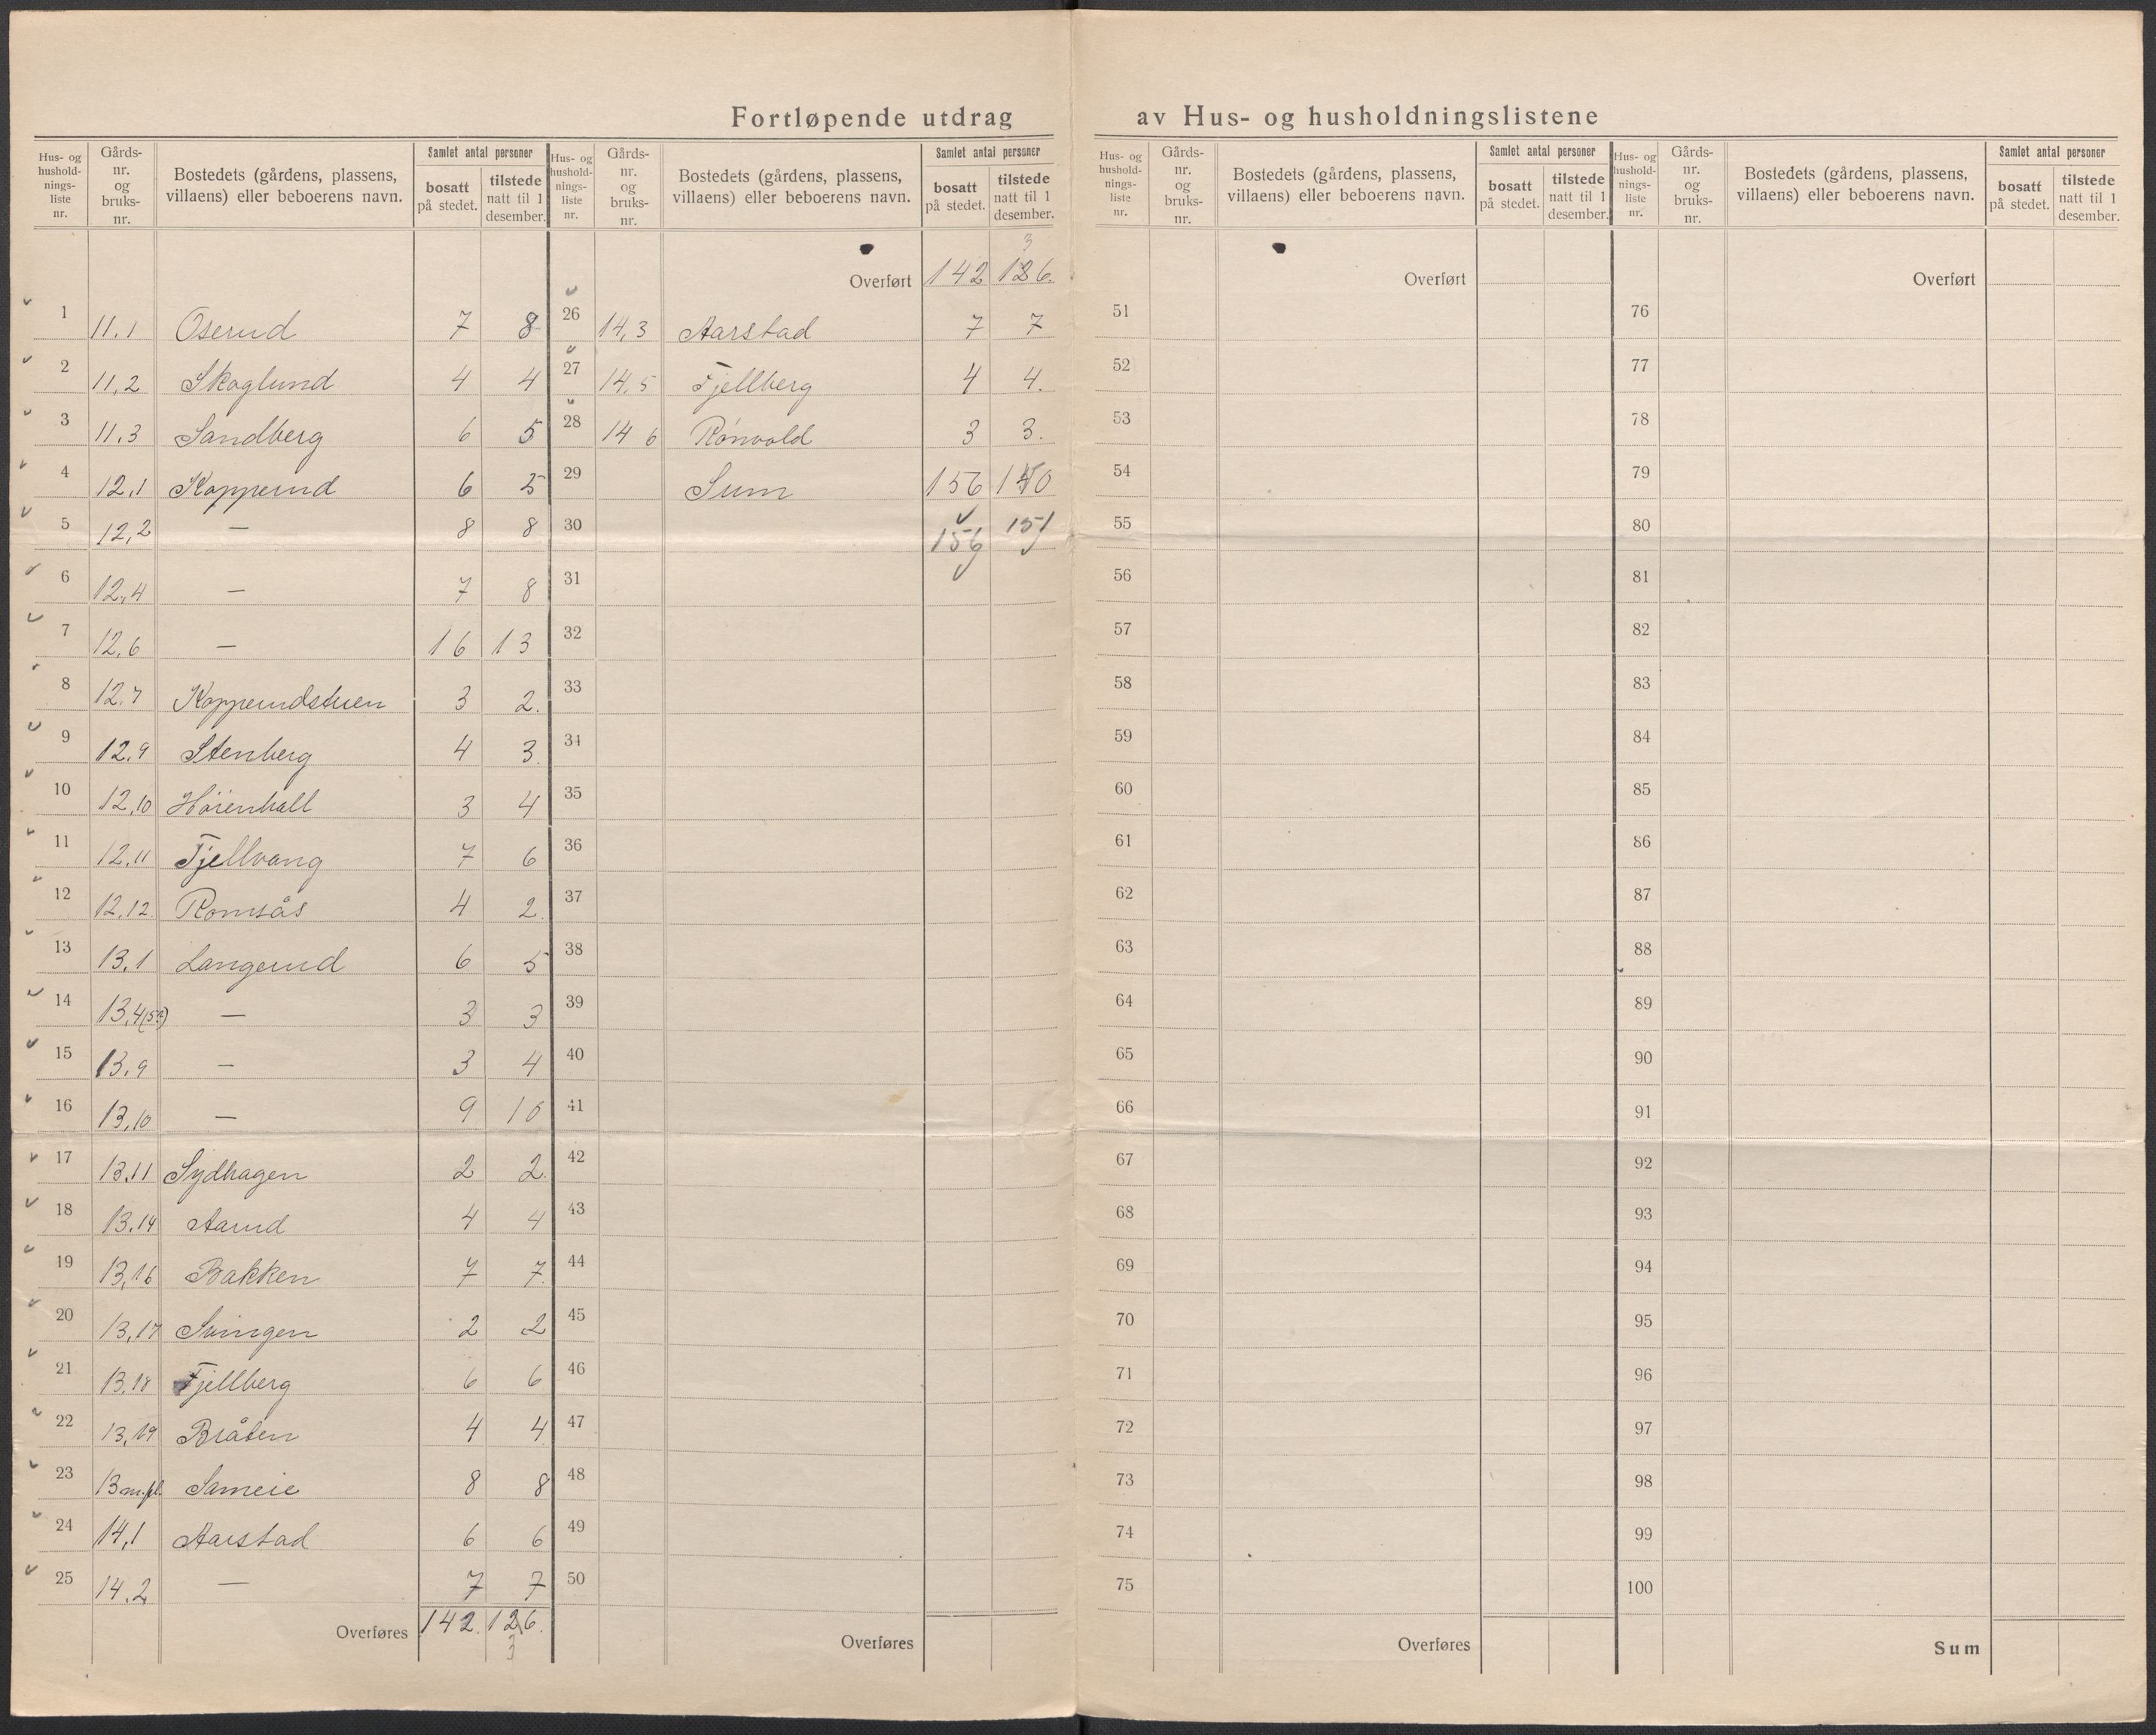 Fortløpende utdrag av Hus- og husholdningslistene
Hus- og hushold- nings- liste nr. Gårds- nr. og bruks- nr. Bostedets (gårdens, plassens, villaens) eller beboerens navn. Samlet antal personer bosatt på stedet. tilstede natt til 1 desember.
1 11.1 Oserud 7 8
2 11,2 Skoglund 4 4
3 11.3 Sandberg 6 5
4 12,1 Kopperud 6 5
5 12,2 — 8 8
6 12,4 — 7 8
7 12.6 — 16 13
8 12.7 Kopperudstuen 3 2.
9 12.9 Stenberg 4 3.
10 12,10 Høienhall 3 4
11 12.11 Fjellvang 7 6
12 12.12. Romsås 4 2.
13 13.1 Langerud 6 5
14 13,4(5?) — 3 3
15 13.9 — 3 4
16 13,10 — 9 10
17 13.11 Sydhagen 2 2.
18 13.14 Aarud 4 4
19 13,16 Bakken 7 7.
20 13,17 Svingen 2 2
21 13.18 Fjellberg 6 6
22 13,19 Bråten 4 4
23 13 m.fl. Sameie 8 8
24 14,1 Aarstad 6 6
25 14.2 — 7 7
Overføres 142. 126.
3
Hus- og hushold- nings- liste nr. Gårds- nr. og bruks- nr. Bostedets (gårdens, plassens, villaens) eller beboerens navn. Samlet antal personer bosatt på stedet. tilstede natt til 1 desember.
3
Overført 142 126.
26 14,3 Aarstad 7 7
27 14.5 Fjellberg 4 4.
28 14 6 Rønvold 3 3.
29 Sum 156 140
30 156 151
31
32
33
34
35
36
37
38
39
40
41
42
43
44
45
46
47
48
49
50
Overføres
Hus- og hushold- nings- liste nr. Gårds- nr. og bruks- nr. Bostedets (gårdens, plassens, villaens) eller beboerens navn. Samlet antal personer bosatt på stedet. tilstede natt til 1 desember.
Overført
51
52
53
54
55
56
57
58
59
60
61
62
63
64
65
66
67
68
69
70
71
72
73
74
75
Overføres
Hus- og hushold- nings- liste nr. Gårds- nr. og bruks- nr. Bostedets (gårdens, plassens, villaens) eller beboerens navn. Samlet antal personer bosatt på stedet. tilstede natt til 1 desember.
Overført
76
77
78
79
80
81
82
83
84
85
86
87
88
89
90
91
92
93
94
95
96
97
98
99
100
Sum